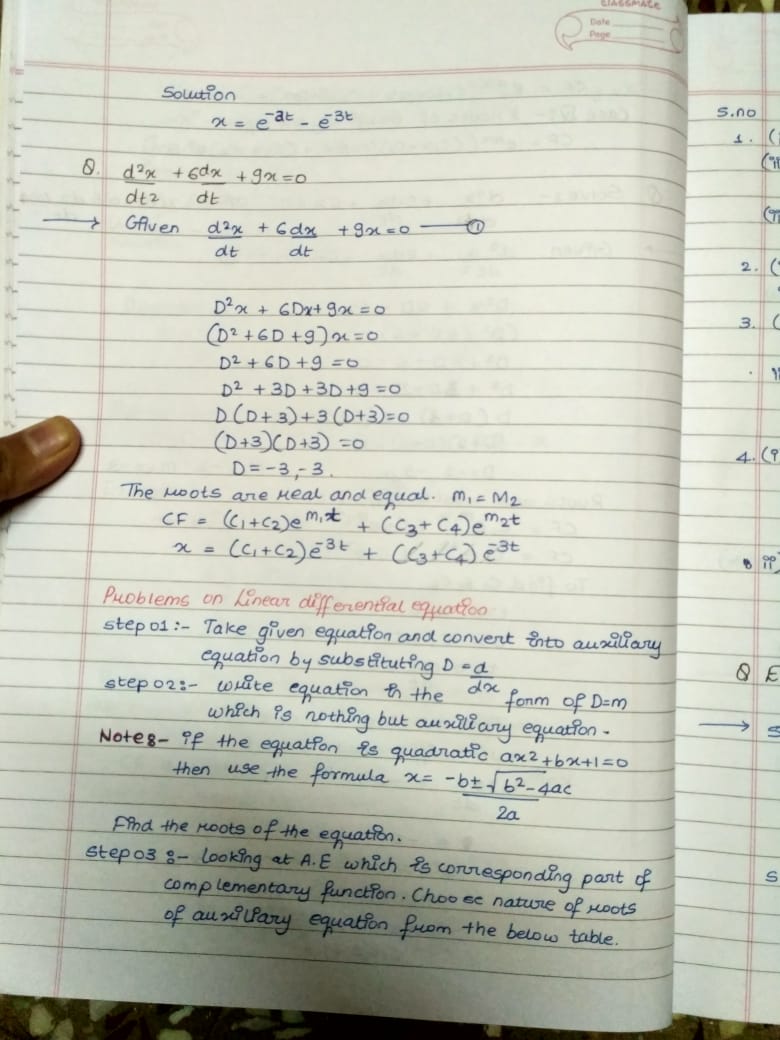 classmate
Date
Page
Solution
x = e^-2t - e^-3t
Q. d²x/dt2 + 6dx/dt + 9x = 0
→ Given d²x/dt + 6dx/dt + 9x = 0 —— ①
D²x + 6Dx + 9x = 0
(D² + 6D + 9)x = 0
D² + 6D + 9 = 0
D² + 3D + 3D + 9 = 0
D(D+3) + 3(D+3) = 0
(D+3)(D+3) = 0
D = -3, -3.
The roots are real and equal. m₁ = M₂
CF = (C₁+C₂)e^m₁t + (C₃+C₄)e^m₂t
x = (C₁+C₂)e^-3t + (C₃+C₄)e^-3t
Problems on Linear differential equation
step 01 :- Take given equation and convert into auxiliary
equation by substituting D = d/dx
step 02 :- write equation in the form of D=m
which is nothing but auxiliary equation.
Note :- if the equation is quadratic ax2 + bx + 1 = 0
then use the formula x = -b ± √b²-4ac / 2a
Find the roots of the equation.
step 03 :- Looking at A.E which is corresponding part of
complementary function. Choose nature of roots
of auxiliary equation from the below table.
S.no
1.
2.
3.
4.
Q E
→ S